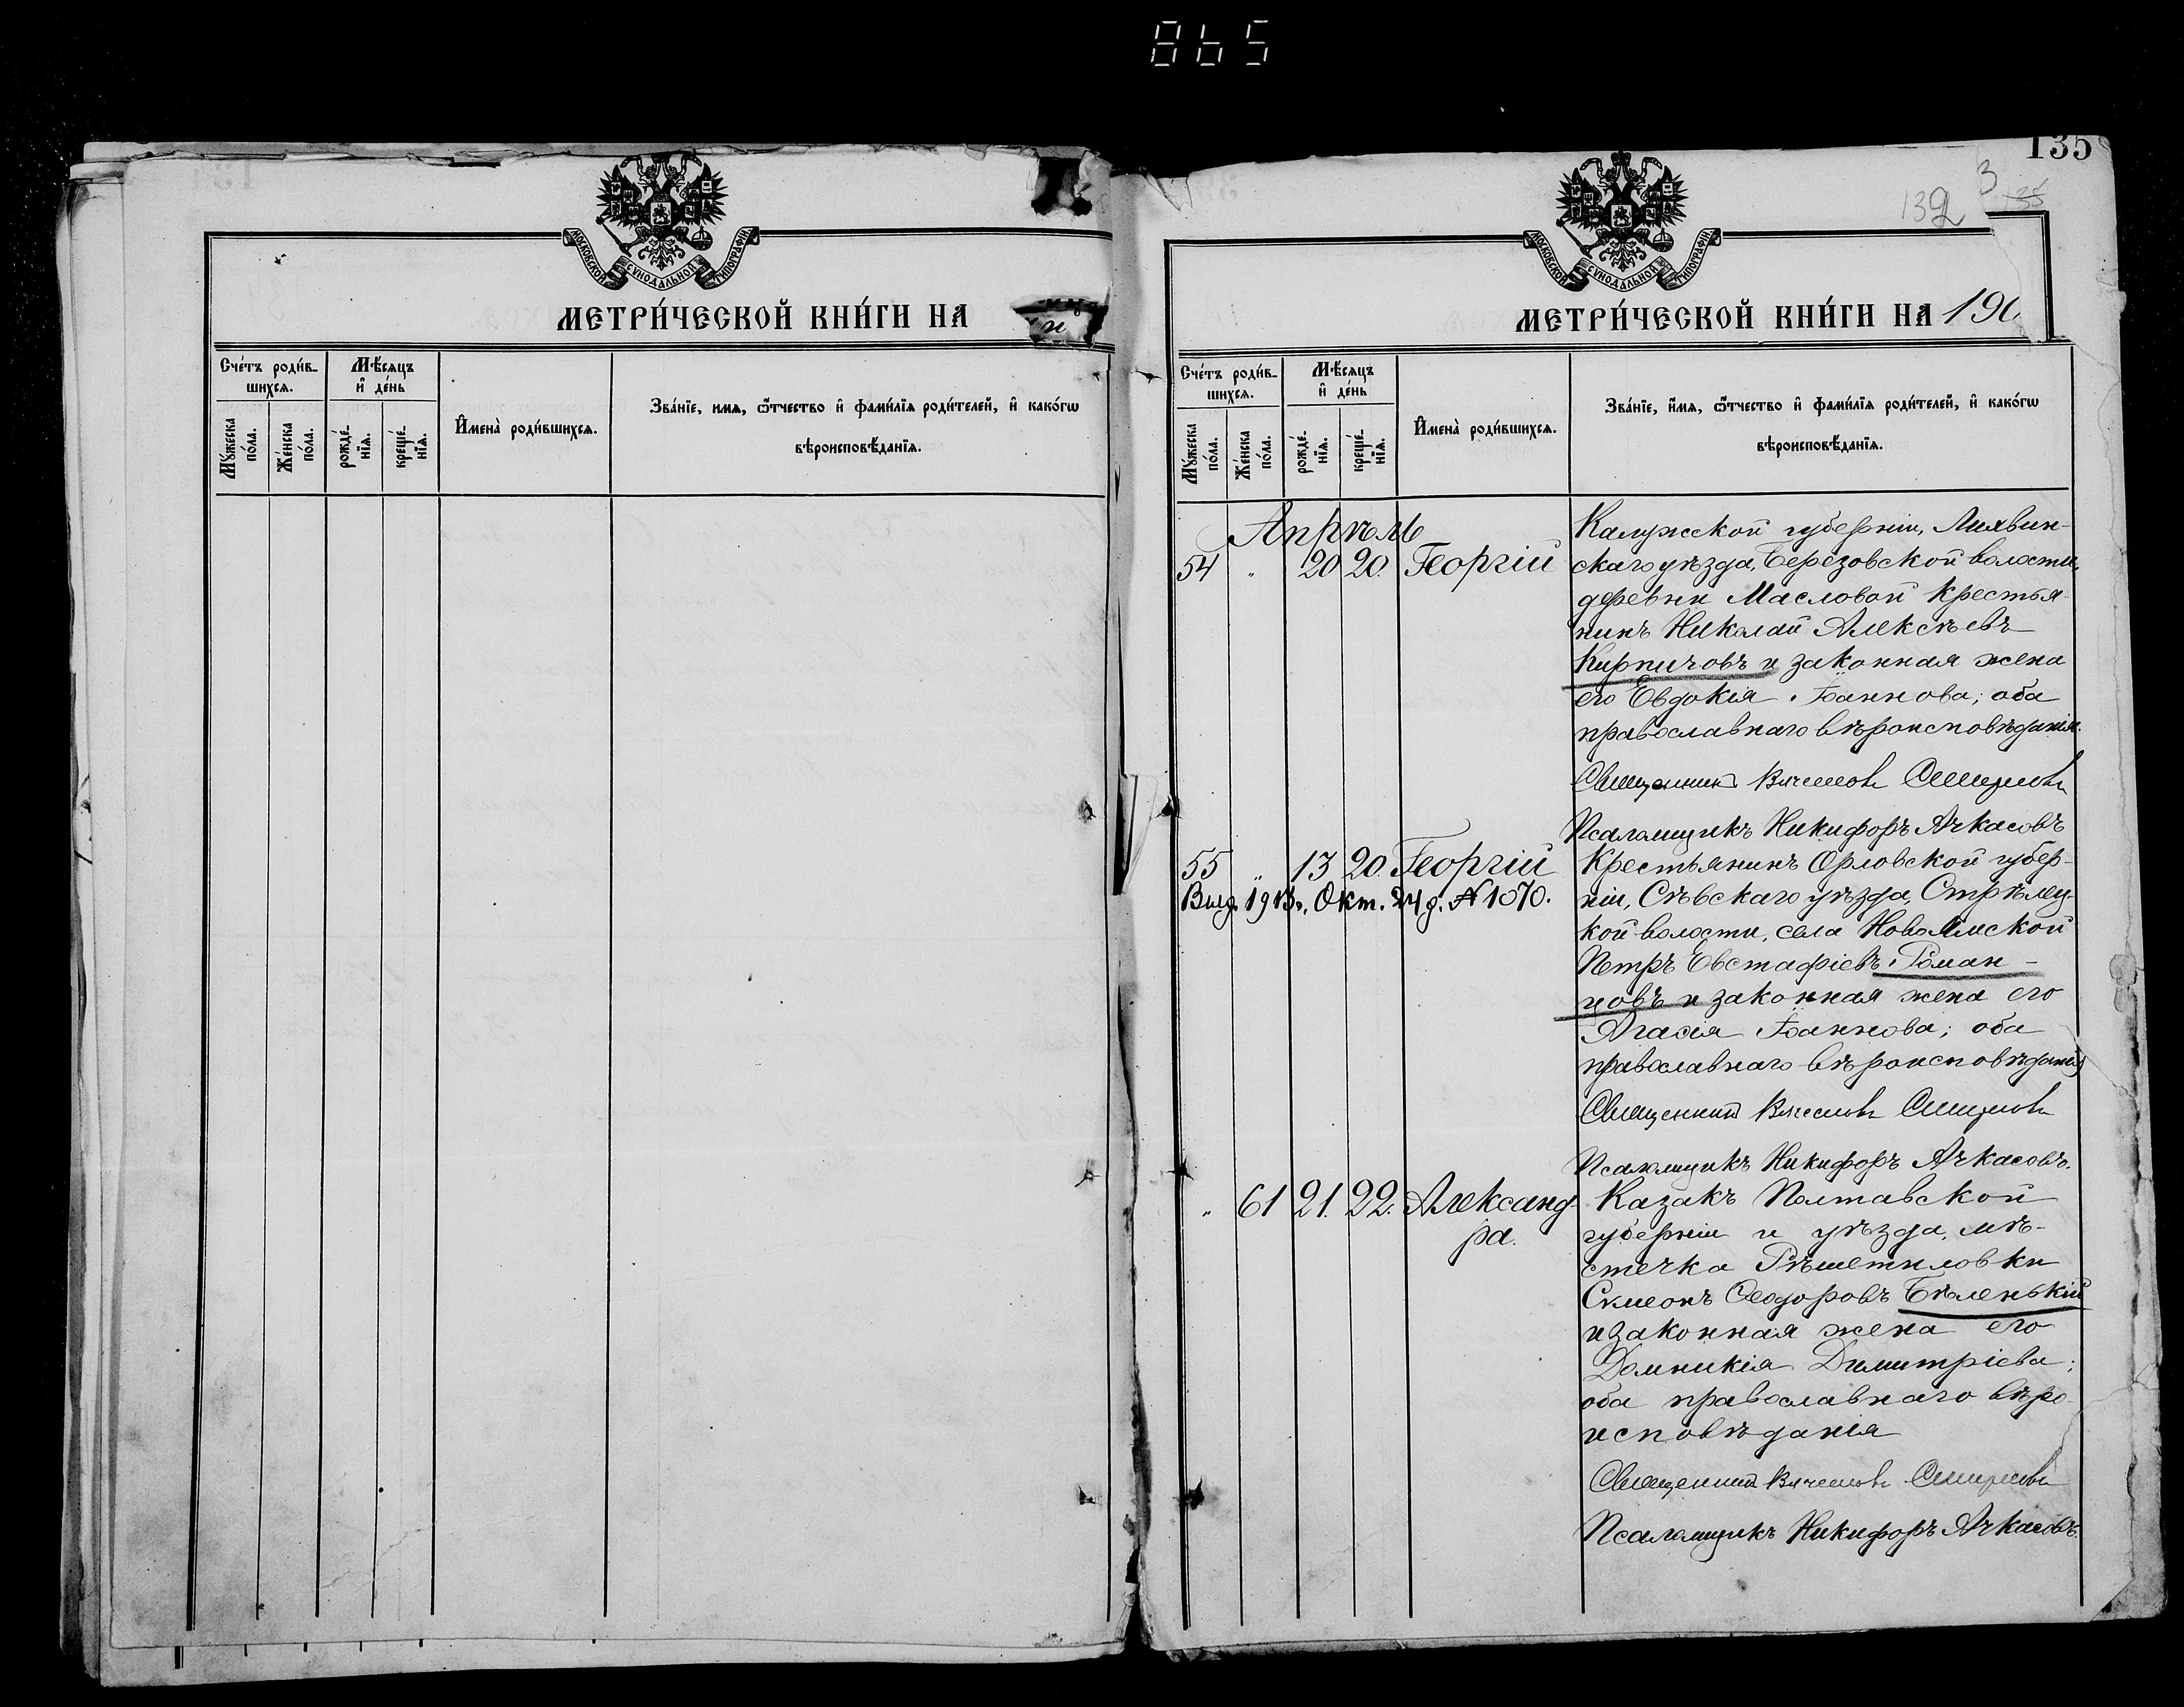 865
МОСКОВСКОЙ СѴНОДАЛЬНОЙ ТИПОГРАФІИ
МЕТРИ́ЧЕСКОЙ КНИ́ГИ НА
Сче́тъ роди́в-
шихся.
Мѣ́сяцъ
и҆ де́нь
Му́жеска
по́ла.
Же́нска
по́ла.
рожде́-
нїя.
креще́-
нїя.
И҆мена̀ роди́вшихся.
Зва́нїе, имя, ѻ҆́тчество и҆ фами́лїя роди́телей, и҆ како́гѡ
вѣроисповѣ́данїя.
135
132
3
МОСКОВСКОЙ СѴНОДАЛЬНОЙ ТИПОГРАФІИ
МЕТРИ́ЧЕСКОЙ КНИ́ГИ НА 190
Сче́тъ роди́в-
шихся.
Мѣ́сяцъ
и҆ де́нь
Му́жеска
по́ла.
Же́нска
по́ла.
рожде́-
нїя.
креще́-
нїя.
И҆мена̀ роди́вшихся.
Зва́нїе, и҆́мя, ѻ҆́тчество и҆ фами́лїя роди́телей, и҆ како́гѡ
вѣроисповѣ́данїя.
Апрѣль
54 " 20 20. Георгій
Калужской губерніи, Лихвин-
скаго уѣзда, Березовской волости,
деревни Масловой крестья-
нинъ Николай Алексѣевъ
Кирпичовъ и законная жена
его Евдокія Іоаннова; оба
православнаго вѣроисповѣданія.
Священникъ Вячеславъ Смирновъ
Псаломщикъ Никифоръ Ачкасовъ
55 " 13 20. Георгій
Выд. 1913г. Окт. 24 д. № 1070.
Крестьянинъ Орловской губер-
ніи, Сѣвскаго уѣзда, Стрѣлец-
кой волости, села Новоямской
Петръ Евстафіевъ Роман-
цовъ и законная жена его
Агасія Іоаннова; оба
православнаго вѣроисповѣданія
Священникъ Вячеславъ Смирновъ
Псаломщикъ Никифоръ Ачкасовъ.
" 61 21. 22. Александ-
ра.
Казакъ Полтавской
губерніи и уѣзда, мѣ-
стечка Рѣшетиловки
Сѵмеонъ Ѳеодоровъ Бѣленькій
и законная жена его
Домникія Димитріева;
оба православнаго вѣро-
исповѣданія
Священникъ Вячеславъ Смирновъ
Псаломщикъ Никифоръ Ачкасовъ.